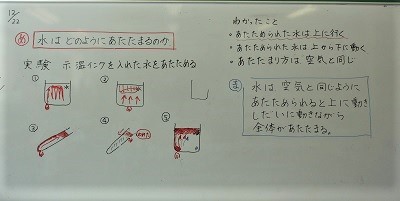 12/22
め 水はどのようにあたたまるのか
実験 示温インクを入れた水をあたためる
①
②
③
④
⑤
わかったこと
・あたためられた水は上に行く
・あたためられた水は上から下に動く
・あたたまり方は空気と同じ
ま 水は空気と同じように
あたためられると上に動き
しだいに動きながら
全体があたたまる。